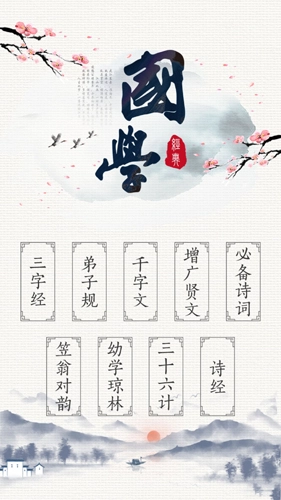 國學
經典
三字经
弟子规
千字文
增广贤文
必备诗词
笠翁对韵
幼学琼林
三十六计
诗经